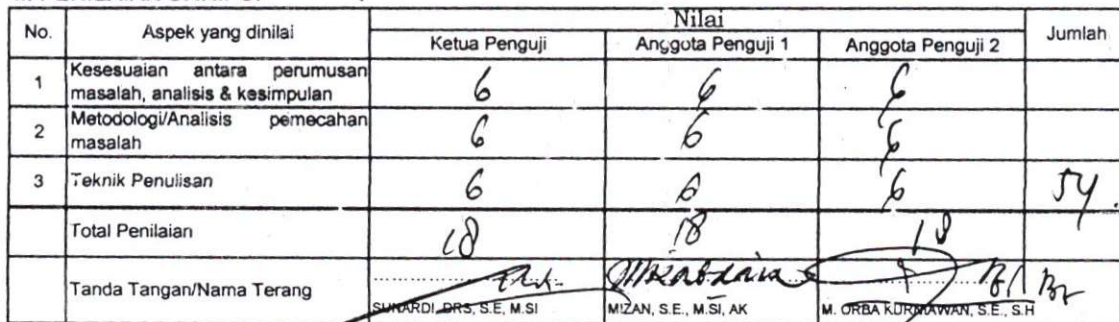 No. Aspek yang dinilai Nilai Jumlah
Ketua Penguji Anggota Penguji 1 Anggota Penguji 2
1 Kesesuaian antara perumusan
masalah, analisis & kesimpulan 6 6 6
2 Metodologi/Analisis pemecahan
masalah 6 6 6
3 Teknik Penulisan 6 6 6 54
Total Penilaian 18 18 18
Tanda Tangan/Nama Terang
SUNARDI, DRS, S.E, M.SI MIZAN, S.E., M.SI, AK M. ORBA KURNIAWAN, S.E., S.H